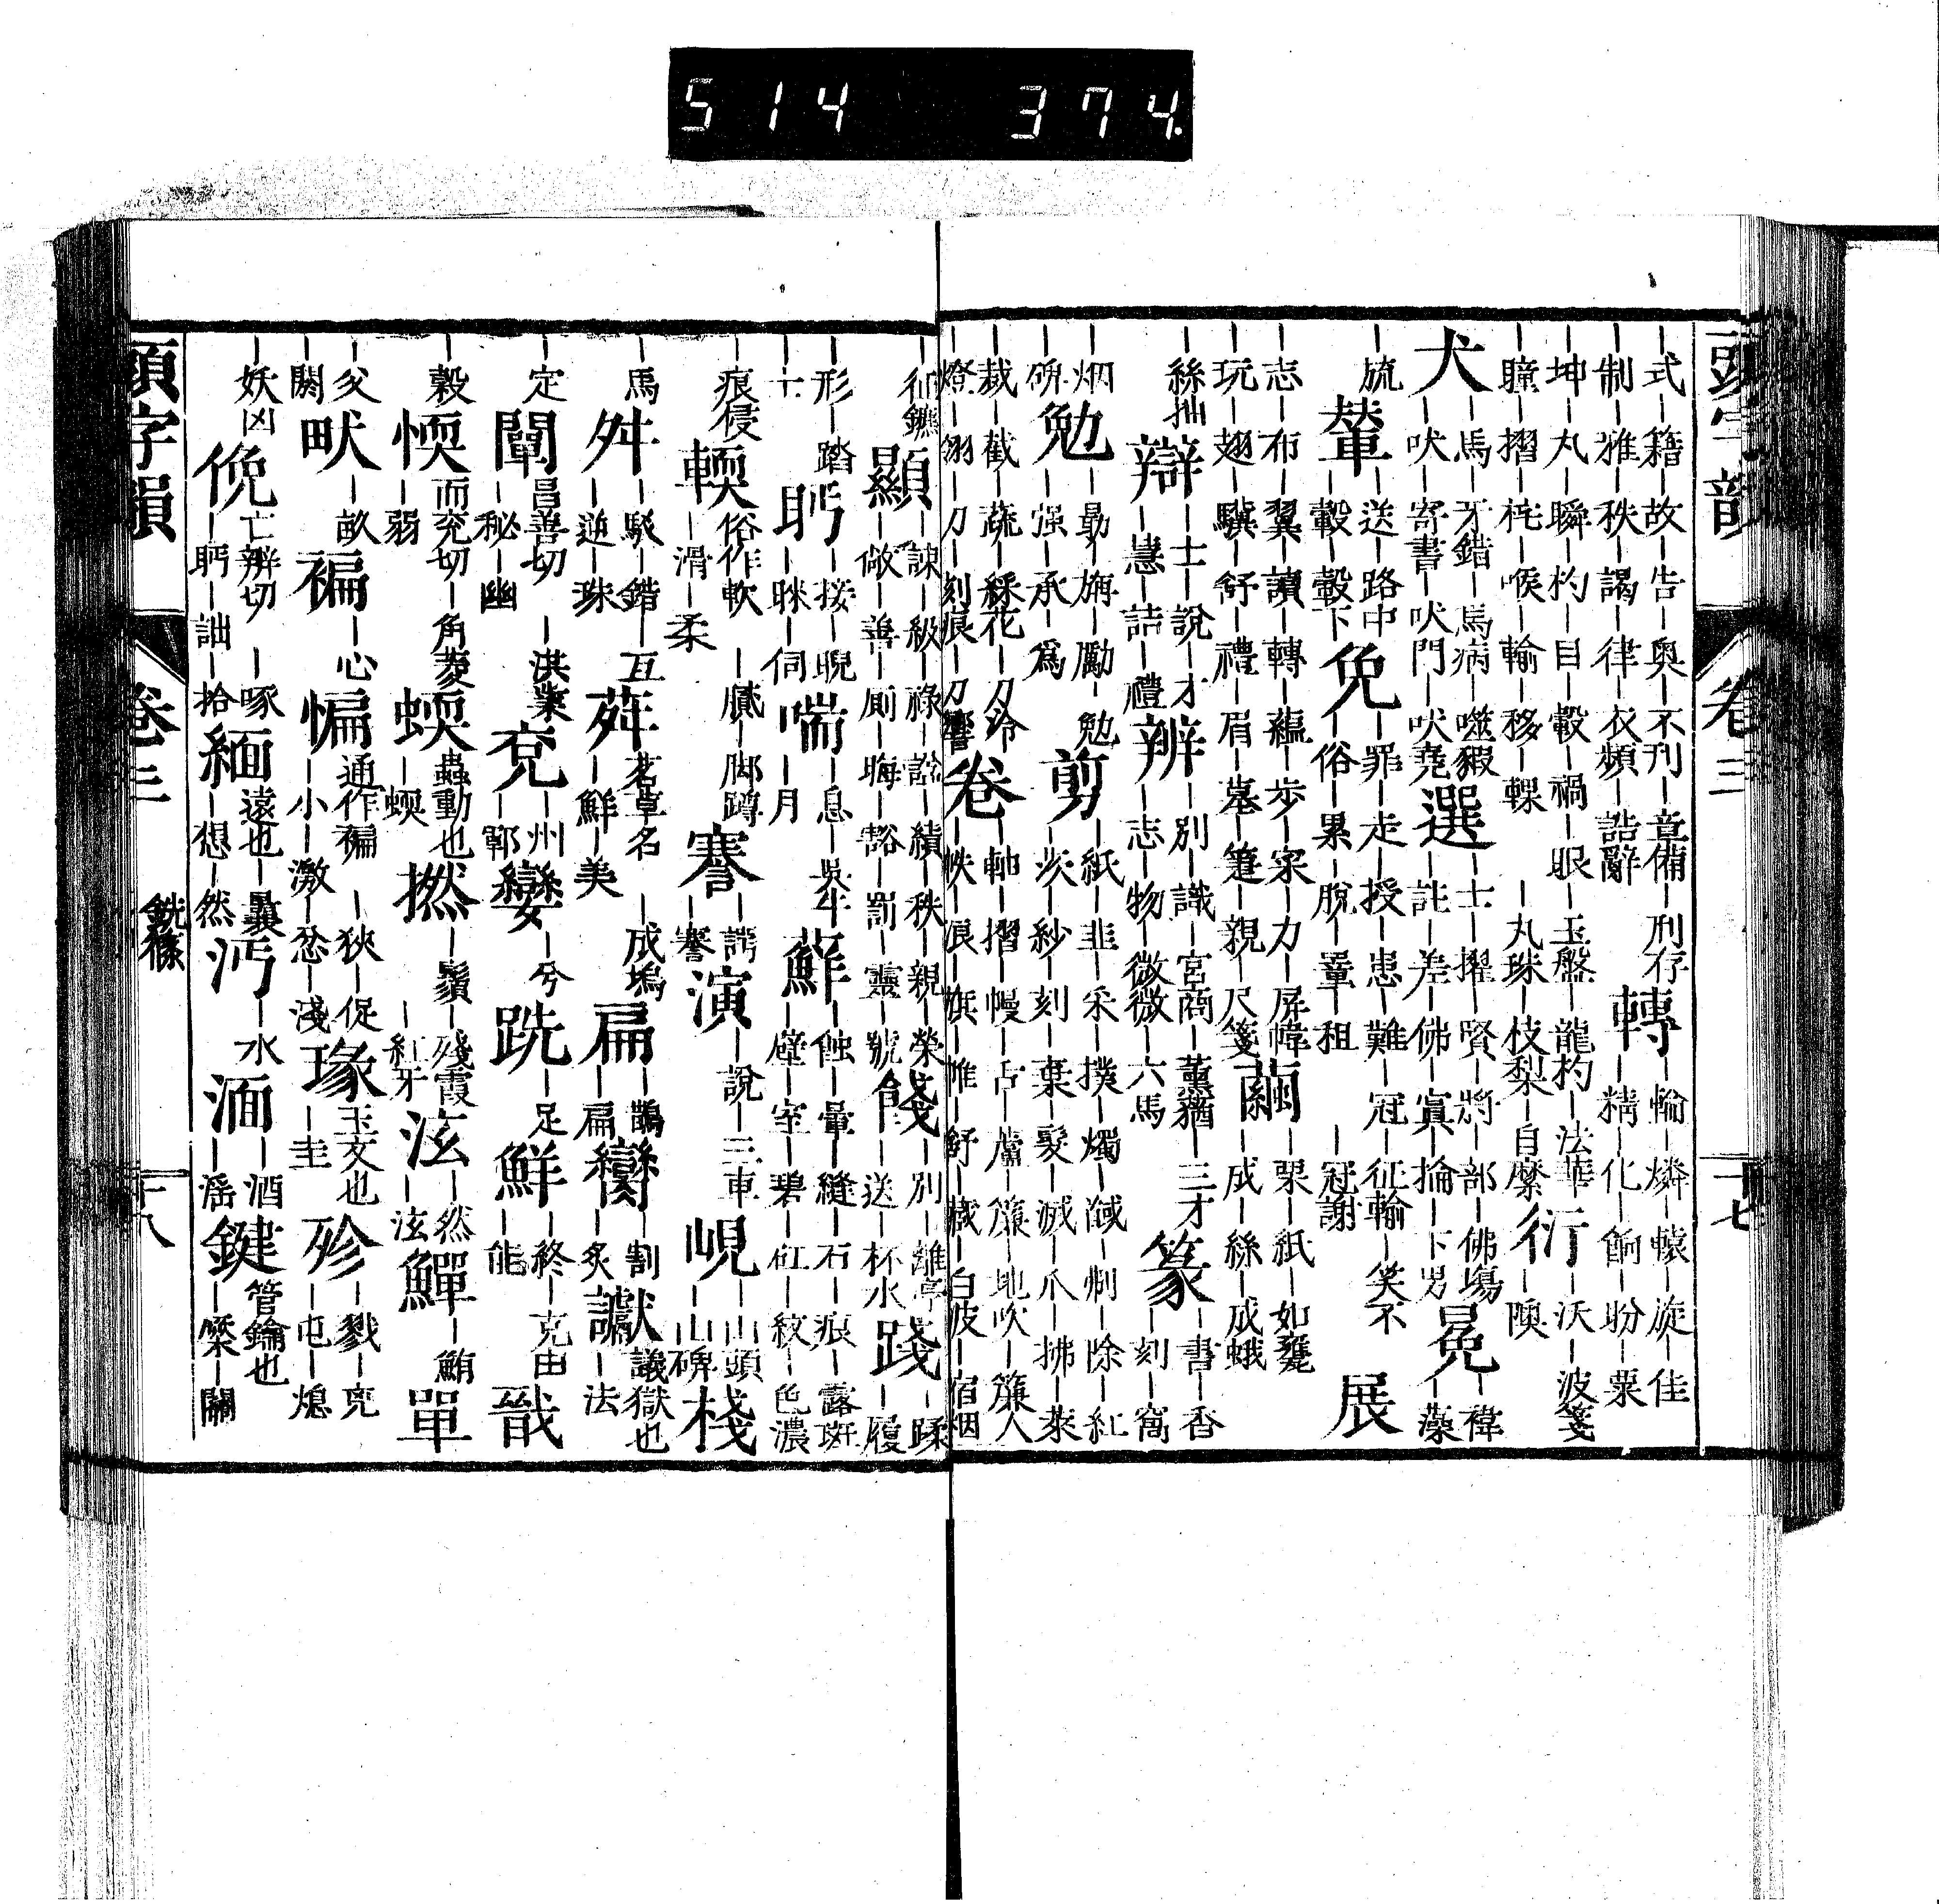 514 374.
頭字韻 卷三 十七
｜式｜籍｜故｜告｜奥｜不刊｜章備｜刑存
｜制｜雅｜秩｜謁｜律｜衣頻｜誥辭
轉
｜輪｜燐｜轅｜旋｜佳
｜精｜化｜餉｜盼｜粟
｜坤｜丸｜瞬｜杓｜目｜轂｜禍｜眼｜玉盤｜龍杓｜法華
｜瞳｜摺｜柁｜喉｜輸｜移｜輠｜丸珠｜枝梨｜自縻
衍
｜沃｜波箋
｜隩
犬
｜馬｜牙錯｜馬病｜噬豭
｜吠｜寄書｜吠門｜吠堯
選
｜士｜擢｜賢｜將｜部｜佛塲
｜詿｜差｜佛｜寘｜掄｜下男
冕
｜褘
｜藻
｜旒
輦
｜送｜路中
｜轂｜轂下
免
｜罪｜走｜授｜患｜難｜冠｜征輪｜笑不
｜俗｜累｜脫｜罿｜租｜冠謝
展
｜志｜布｜翼｜讀｜轉｜蘊｜步｜宋｜力｜屏幃
｜玩｜翅｜驥｜舒｜禮｜眉｜墓｜筵｜親｜尺箋
繭
｜栗｜紙｜如甕
｜成｜絲｜成蛾
｜絲抽
辯
｜士｜說｜才
｜慧｜詰｜禮
辨
｜別｜識｜宮商｜薰蕕｜三才
｜志｜物｜微微｜六馬
篆
｜書｜香
｜刻｜窩
｜烟
｜碑
勉
｜勗｜旃｜勵｜勉
｜强｜承｜爲
剪
｜紙｜韭｜采｜撲｜燭｜馘｜制｜除｜紅
｜茨｜紗｜刻｜棄｜髮｜滅｜爪｜拂｜萊
｜裁｜截｜蔬｜綵花｜刀冷
｜燈｜翎｜刀｜刻痕｜刀響
卷
｜軸｜摺｜幔｜舌｜蘆｜簾｜地吹｜簾人
｜帙｜浪｜旗｜帷｜舒｜蔵｜白波｜宿烟
｜征鑣
顯
｜諫｜級｜祿｜訟｜績｜秩｜親｜榮
｜敞｜善｜厠｜晦｜豁｜罰｜靈｜號
餞
｜別｜離亭
｜送｜杯水
踐
｜蹂
｜履
｜形｜踏
｜十
眄
｜接｜睨
｜睞｜伺
喘
｜息｜吳牛
｜月
蘚
｜蝕｜暈｜縫｜石｜痕｜露斑
｜壁｜室｜碧｜紅｜紋｜色濃
｜痕侵
輭
俗作軟｜膩｜脚蹲
｜滑｜柔
謇
｜諤
｜謇
演
｜說｜三車
峴
｜山頭
｜山碑
棧
｜馬
舛
｜駁｜錯｜互
｜逆｜殊
荈
茗草名｜成塢
｜鮮｜美
扁
｜鵲
｜扁
臠
｜割
｜炙
讞
議獄也
｜法
｜定
闡
昌善切｜洪業
｜秘｜幽
兖
｜州
｜鄆
孌
｜兮
跣
｜足
鮮
｜終｜克由
｜能
戩
｜榖
愞
而兖切｜角菱
｜弱
蝡
蟲動也
｜蝡
撚
｜鬚｜殘霞
｜紅牙
泫
｜然
｜泫
鱓
｜鮪
單
｜父
｜閼
畎
｜畝
褊
｜心
惼
通作褊｜狹｜促
｜小｜激｜忿｜淺
瑑
玉文也
｜圭
殄
｜戮｜兇
｜屯｜熄
｜妖凶
俛
亡辨切｜啄
｜眄｜詘｜拾
緬
遠也｜曩
｜想｜然
沔
｜水
湎
｜酒
｜淫
鍵
管鑰也
｜橜｜關
頭字韻 卷三 銑獮 十八